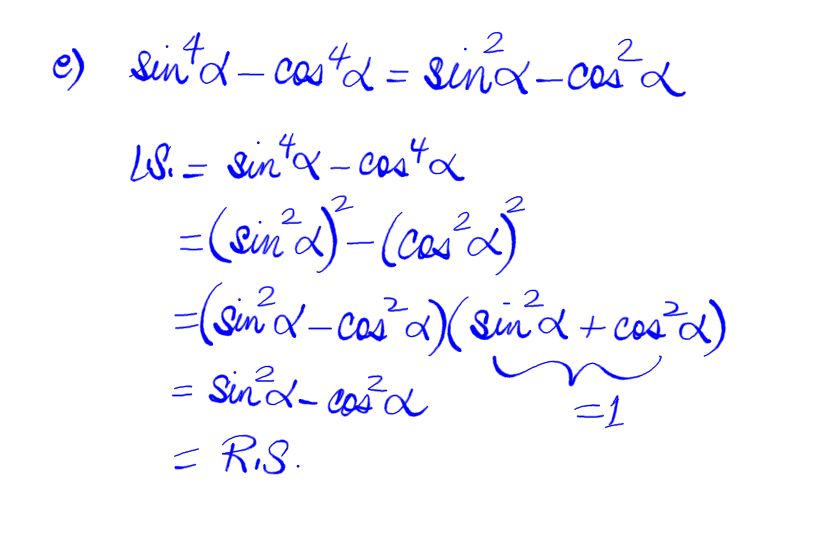 e) sin⁴α – cos⁴α = sin²α – cos²α
L.S. = sin⁴α – cos⁴α
= (sin²α)² – (cos²α)²
= (sin²α – cos²α)(sin²α + cos²α)
= sin²α – cos²α
= 1
= R.S.